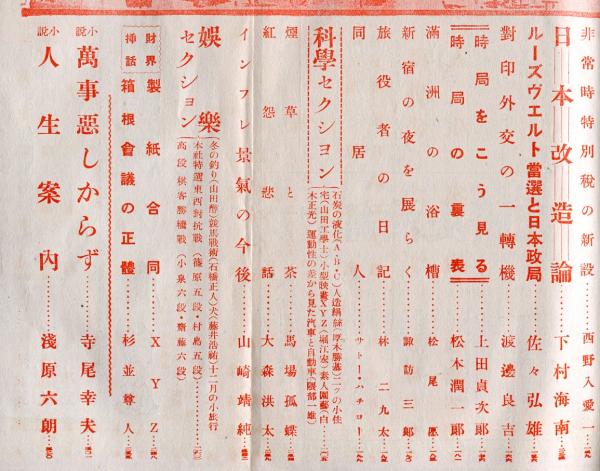 非常時特別税の新設………西野入愛一
日本改造論……下村海南
ルーズヴエルト當選と日本政局……佐々弘雄
對印外交の一轉機……渡邊良吉
時局をこう見る……上田貞次郎
時局の裏表……松本潤一郎
滿洲の浴槽……松尾
新宿の夜を展らく……諏訪三郎
旅役者の日記……林二九太
同居人……サトー・ハチロー
科學セクション
石炭の液化(A・B・C)人造絹絲(厚木勝基)二ツの小住
宅(山田工學士)小型映畫XYZ(堀江宏)素人園藝(白
木正光)運動性の差から見た汽車と自動車(隈部一雄)
煙草と茶……馬場孤蝶
紅怨悲話……大森洪太
インフレ景氣の今後……山崎靖純
娯樂セクション
冬の釣り(山田酢)競馬戰術(石橋正人)犬(藤井浩祐)十二月の小旅行
本社特選東西對抗戰(篠原五段・村島五段)
高段棋客勝繼戰(小泉六段・齋藤六段)
財界挿話 製紙合同……XYZ
箱根會議の正體……杉並尊人
小說 萬事惡しからず……寺尾幸夫
小說 人生案內……淺原六朗